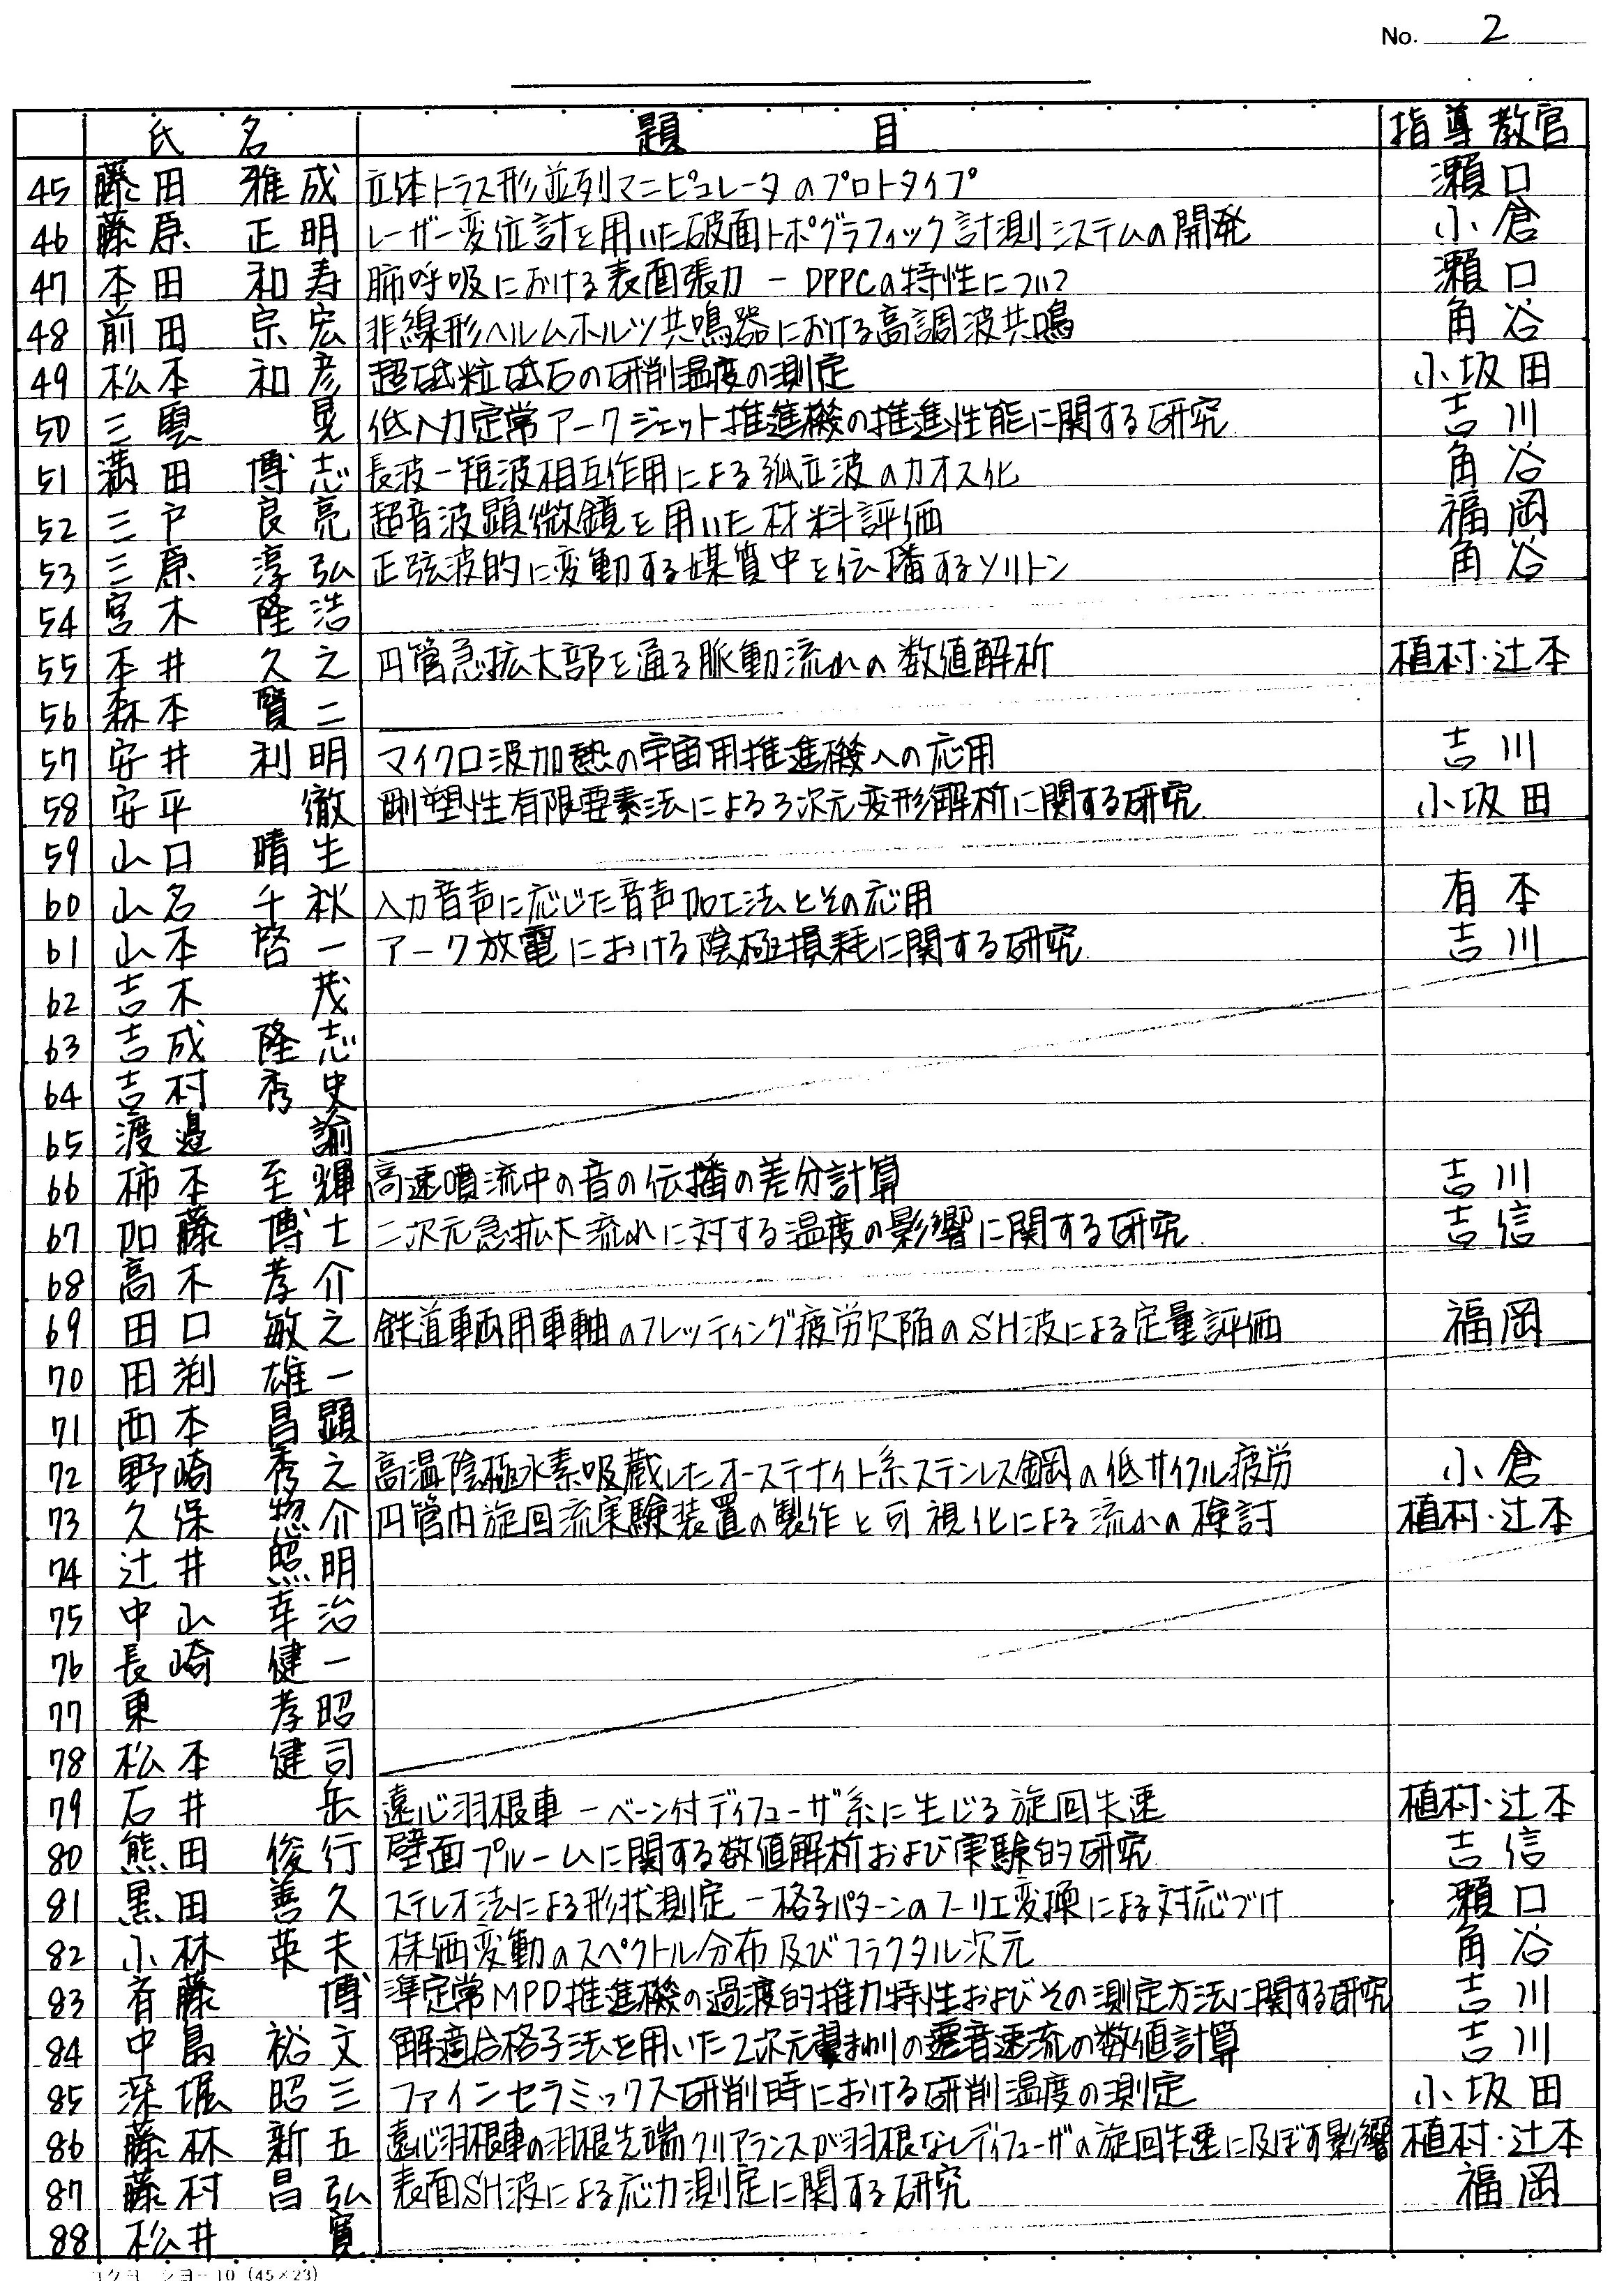 No. 2
氏 名 題 目 指導教官
45 藤田 雅成 立体トラス形並列マニピュレータのプロトタイプ 瀬口
46 藤原 正明 レーザー変位計を用いた破面トポグラフィック計測システムの開発 小倉
47 本田 和寿 肺呼吸における表面張力 － DPPCの特性について 瀬口
48 前田 宗宏 非線形ヘルムホルツ共鳴器における高調波共鳴 角谷
49 松本 和彦 超砥粒砥石の研削温度の測定 小坂田
50 三雲 晃 低入力定常アークジェット推進機の推進性能に関する研究 吉川
51 満田 博志 長波－短波相互作用による孤立波のカオス化 角谷
52 三戸 良亮 超音波顕微鏡を用いた材料評価 福岡
53 三原 淳弘 正弦波的に変動する媒質中を伝播するソリトン 角谷
54 宮木 隆浩
55 本井 久之 円管急拡大部を通る脈動流れの数値解析 植村・辻本
56 森本 賢二
57 安井 利明 マイクロ波加熱の宇宙用推進機への応用 吉川
58 安平 徹 剛塑性有限要素法による3次元変形解析に関する研究 小坂田
59 山口 晴生
60 山名 千秋 入力音声に応じた音声加工法とその応用 有本
61 山本 啓一 アーク放電における陰極損耗に関する研究 吉川
62 吉木 茂
63 吉成 隆志
64 吉村 秀史
65 渡邉 諭
66 柿本 至輝 高速噴流中の音の伝播の差分計算 吉川
67 加藤 博士 二次元急拡大流れに対する温度の影響に関する研究 吉信
68 高木 孝介
69 田口 敏之 鉄道車両用車軸のフレッティング疲労欠陥のSH波による定量評価 福岡
70 田渕 雄一
71 西本 昌顕
72 野崎 秀之 高温陰極水素吸蔵したオーステナイト系ステンレス鋼の低サイクル疲労 小倉
73 久保 惣介 円管内旋回流実験装置の製作と可視化による流れの検討 植村・辻本
74 辻井 照明
75 中山 幸治
76 長崎 健一
77 東 孝昭
78 松本 健司
79 石井 岳 遠心羽根車－ベーン付ディフューザ系に生じる旋回失速 植村・辻本
80 熊田 俊行 壁面プルームに関する数値解析および実験的研究 吉信
81 黒田 善久 ステレオ法による形状測定－格子パターンのフーリエ変換による対応づけ 瀬口
82 小林 英夫 株価変動のスペクトル分布及びフラクタル次元 角谷
83 斉藤 博 準定常MPD推進機の過渡的推力特性およびその測定方法に関する研究 吉川
84 中島 裕文 解適合格子法を用いた2次元翼まわりの遷音速流の数値計算 吉川
85 深堀 昭三 ファインセラミックス研削時における研削温度の測定 小坂田
86 藤林 新五 遠心羽根車の羽根先端クリアランスが羽根なしディフューザの旋回失速に及ぼす影響 植村・辻本
87 藤村 昌弘 表面SH波による応力測定に関する研究 福岡
88 松井 寛
コクヨ シヨ－10 (45×23)